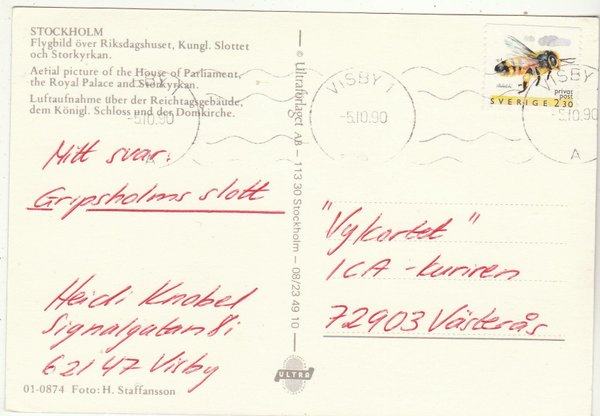 STOCKHOLM
Flygbild över Riksdagshuset, Kungl. Slottet
och Storkyrkan.
Aerial picture of the House of Parliament,
the Royal Palace and Storkyrkan.
Luftaufnahme über der Reichtagsgebäude,
dem Königl. Schloss und der Domkirche.
SBY 1
-5.10.90
A
Mitt svar:
Gripsholms slott
Heidi Knobel
Signalgatan 8i
62147 Visby
01-0874 Foto: H. Staffansson
© Ultraförlaget AB – 113 30 Stockholm – 08/23 49 10
ULTRA
VISBY 1
-5.10.90
A
privat
post
SVERIGE 2.30
SBY
-5.10.90
A
"Vykortet"
ICA-kuriren
72903 Västerås